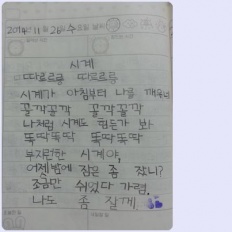 2014년 11월 26일 수요일
시계
따르르릉 따르르릉
시계가 아침부터 나를 깨우네
꼴깍꼴깍 꼴깍꼴깍
나처럼 시계도 힘든가 봐
뚝딱뚝딱 뚝딱뚝딱
부지런한 시계야,
어젯밤에 잠은 좀 잤니?
조금만 쉬었다 가렴.
나도 좀 잘게